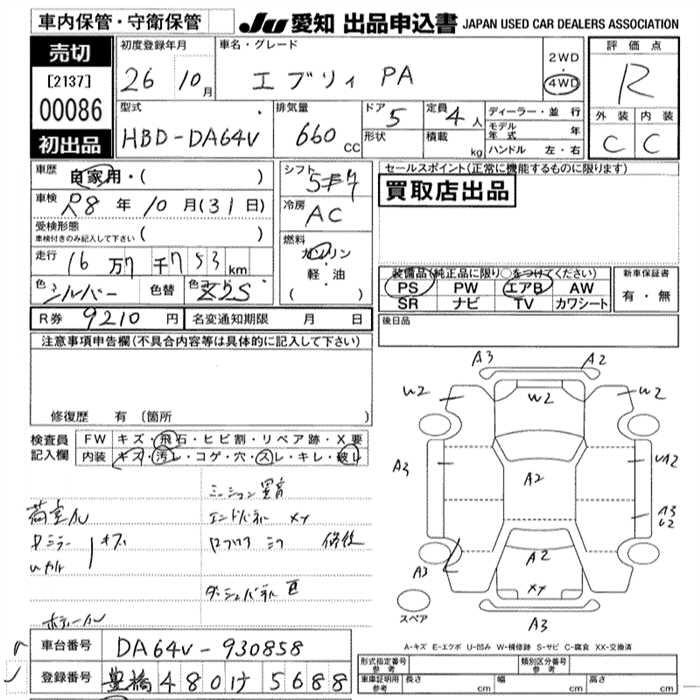 車内保管・守衛保管
JU 愛知 出品申込書 JAPAN USED CAR DEALERS ASSOCIATION
売切
[2137]
00086
初出品
初度登録年月
26 10月
車名・グレード
エブリィ PA
2WD
・
4WD
評価点
R
外装 内装
C C
型式
HBD-DA64V
排気量
660cc
ドア 5
形状
定員 4人
積載 kg
ディーラー・並 行
モデル年式 年
ハンドル 左・右
車歴 自家用・( )
車検 R8年10月(31日)
受検形態
車検付きのみ記入して下さい ( )
走行 16万7千753km
色 シルバー 色替 Z2S
シフト
5速
冷房
AC
燃料
ガソリン
・
軽・油
( )
セールスポイント(正常に機能するものに限ります)
買取店出品
装備品(純正品に限り○をつけてください)
PS PW エアB AW
SR ナビ TV カワシート
新車保証書
有・無
R券 9210円 名変通知期限 月 日
後日品
注意事項申告欄(不具合内容等は具体的に記入して下さい)
修復歴 有 (箇所 )
検査員記入欄
FW キズ・飛石・ヒビ割・リペア跡・X要
内装 キズ・汚レ・コゲ・穴・スレ・キレ・破レ
ミッション異音
エンドパネル XY
修後
キズ
A3 A2
W2 W2 W2
A3 A2 UA2
A3
U2
A3 A2
XY
A3
スペア
A-キズ E-エクボ U-凹み W-補修跡 S-サビ C-腐食 XX-交換済
車台番号 DA64V-930858
登録番号 豊橋 480 け 5688
形式指定番号
参考
類別区分番号
参考
車庫証明用
参考
長さ cm 幅 cm 高さ cm